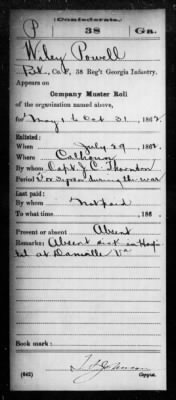 Confederate.
P 38 Ga.
Wiley Powell
Co. F, 38 Reg't Georgia Infantry.
Appears on
Company Muster Roll
of the organization named above,
for May 1 to Oct 31, 1862
Enlisted:
When July 29, 1862
Where Calhoun
By whom Capt. J. C. Thornton
Period 3 or sooner during the war
Last paid:
By whom Not paid
To what time , 186 .
Present or absent Absent
Remarks: Absent sick in Hospi
tal at Danville Va
Book mark:
(642) Copyist.